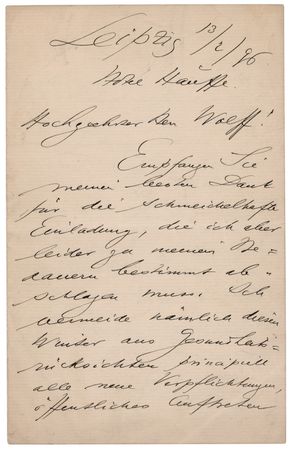 Leipzig 13/2/96
Hôtel Hauffe.
Hochgeehrter Herr Wolff!
Empfangen Sie
meinen besten Dank
für die schmeichelhafte
Einladung, die ich aber
leider zu meinem Be=
dauern bestimmt ab=
schlagen muss. Ich
vermeide nämlich diesen
Winter aus Gesundheits=
rücksichten principiell
alle neue Verpflichtungen,
öffentliches Auftreten